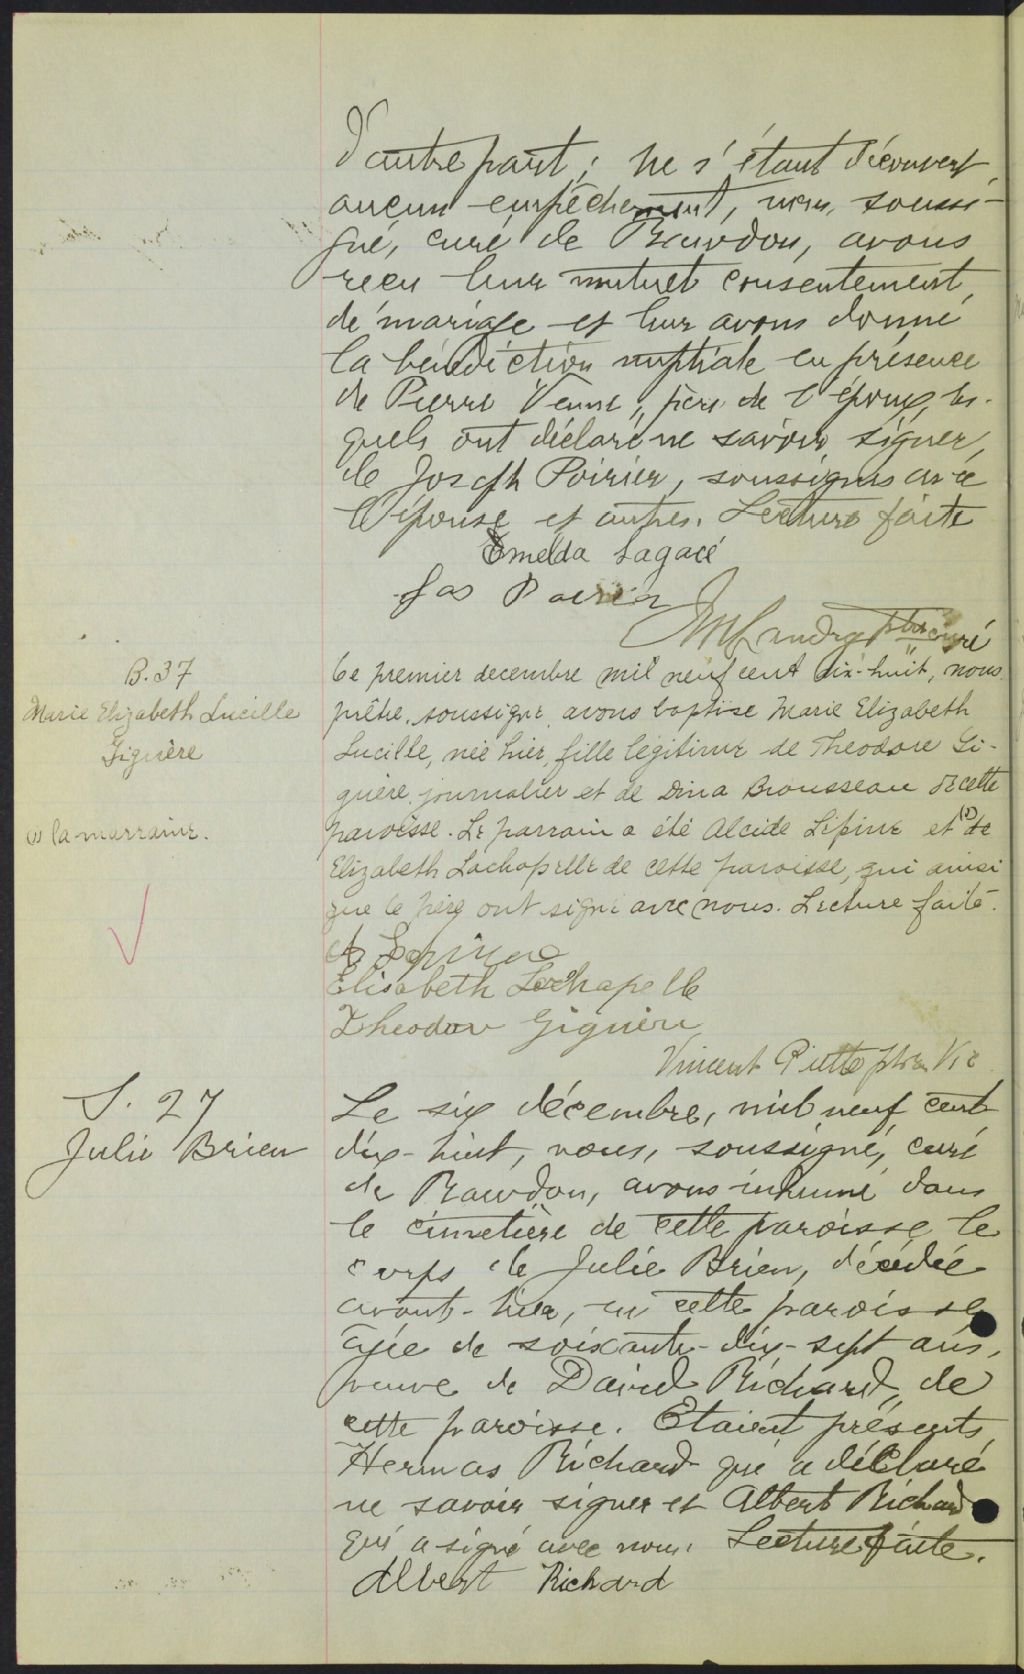 d'autre part; ne s'étant découvert
aucun empêchement, nous, soussi-
gné, curé de Rawdon, avons
reçu leur mutuel consentement
de mariage et leur avons donné
la bénédiction nuptiale en présence
de Pierre Venne, père de l'époux, les-
quels ont déclaré ne savoir signer,
de Joseph Poirier, soussignés avec
l'épouse et autres. Lecture faite
Emelda Lagacé
Jos Poirier
Landry ptre curé
B. 37
Marie Elizabeth Lucille
Giguère
(1) la marraine.
Le premier decembre mil neuf cent dix-huit, nous
prêtre, soussigné, avons baptise Marie Elizabeth
Lucille, née hier, fille légitime de Theodore Gi-
guère, journalier et de Dina Brousseau de cette
paroisse. Le parrain a été Alcide Lépine et (1) de
Elizabeth Lachapelle de cette paroisse, qui ainsi
que le père ont signé avec nous. Lecture faite.
A. Lepine
Elisabeth Lachapelle
Theodore Giguère
Vincent Piette ptre Vic
S. 27
Julie Brien
Le six décembre, mil neuf cent
dix-huit, nous, soussigné, curé
de Rawdon, avons inhumé dans
le cimetière de cette paroisse le
corps de Julie Brien, décédée
avant-hier, en cette paroisse
âgée de soixante-dix-sept ans,
veuve de David Richard, de
cette paroisse. Etaient présents
Hermas Richard qui a déclaré
ne savoir signer et Albert Richard
qui a signé avec nous. Lecture faite.
Albert Richard